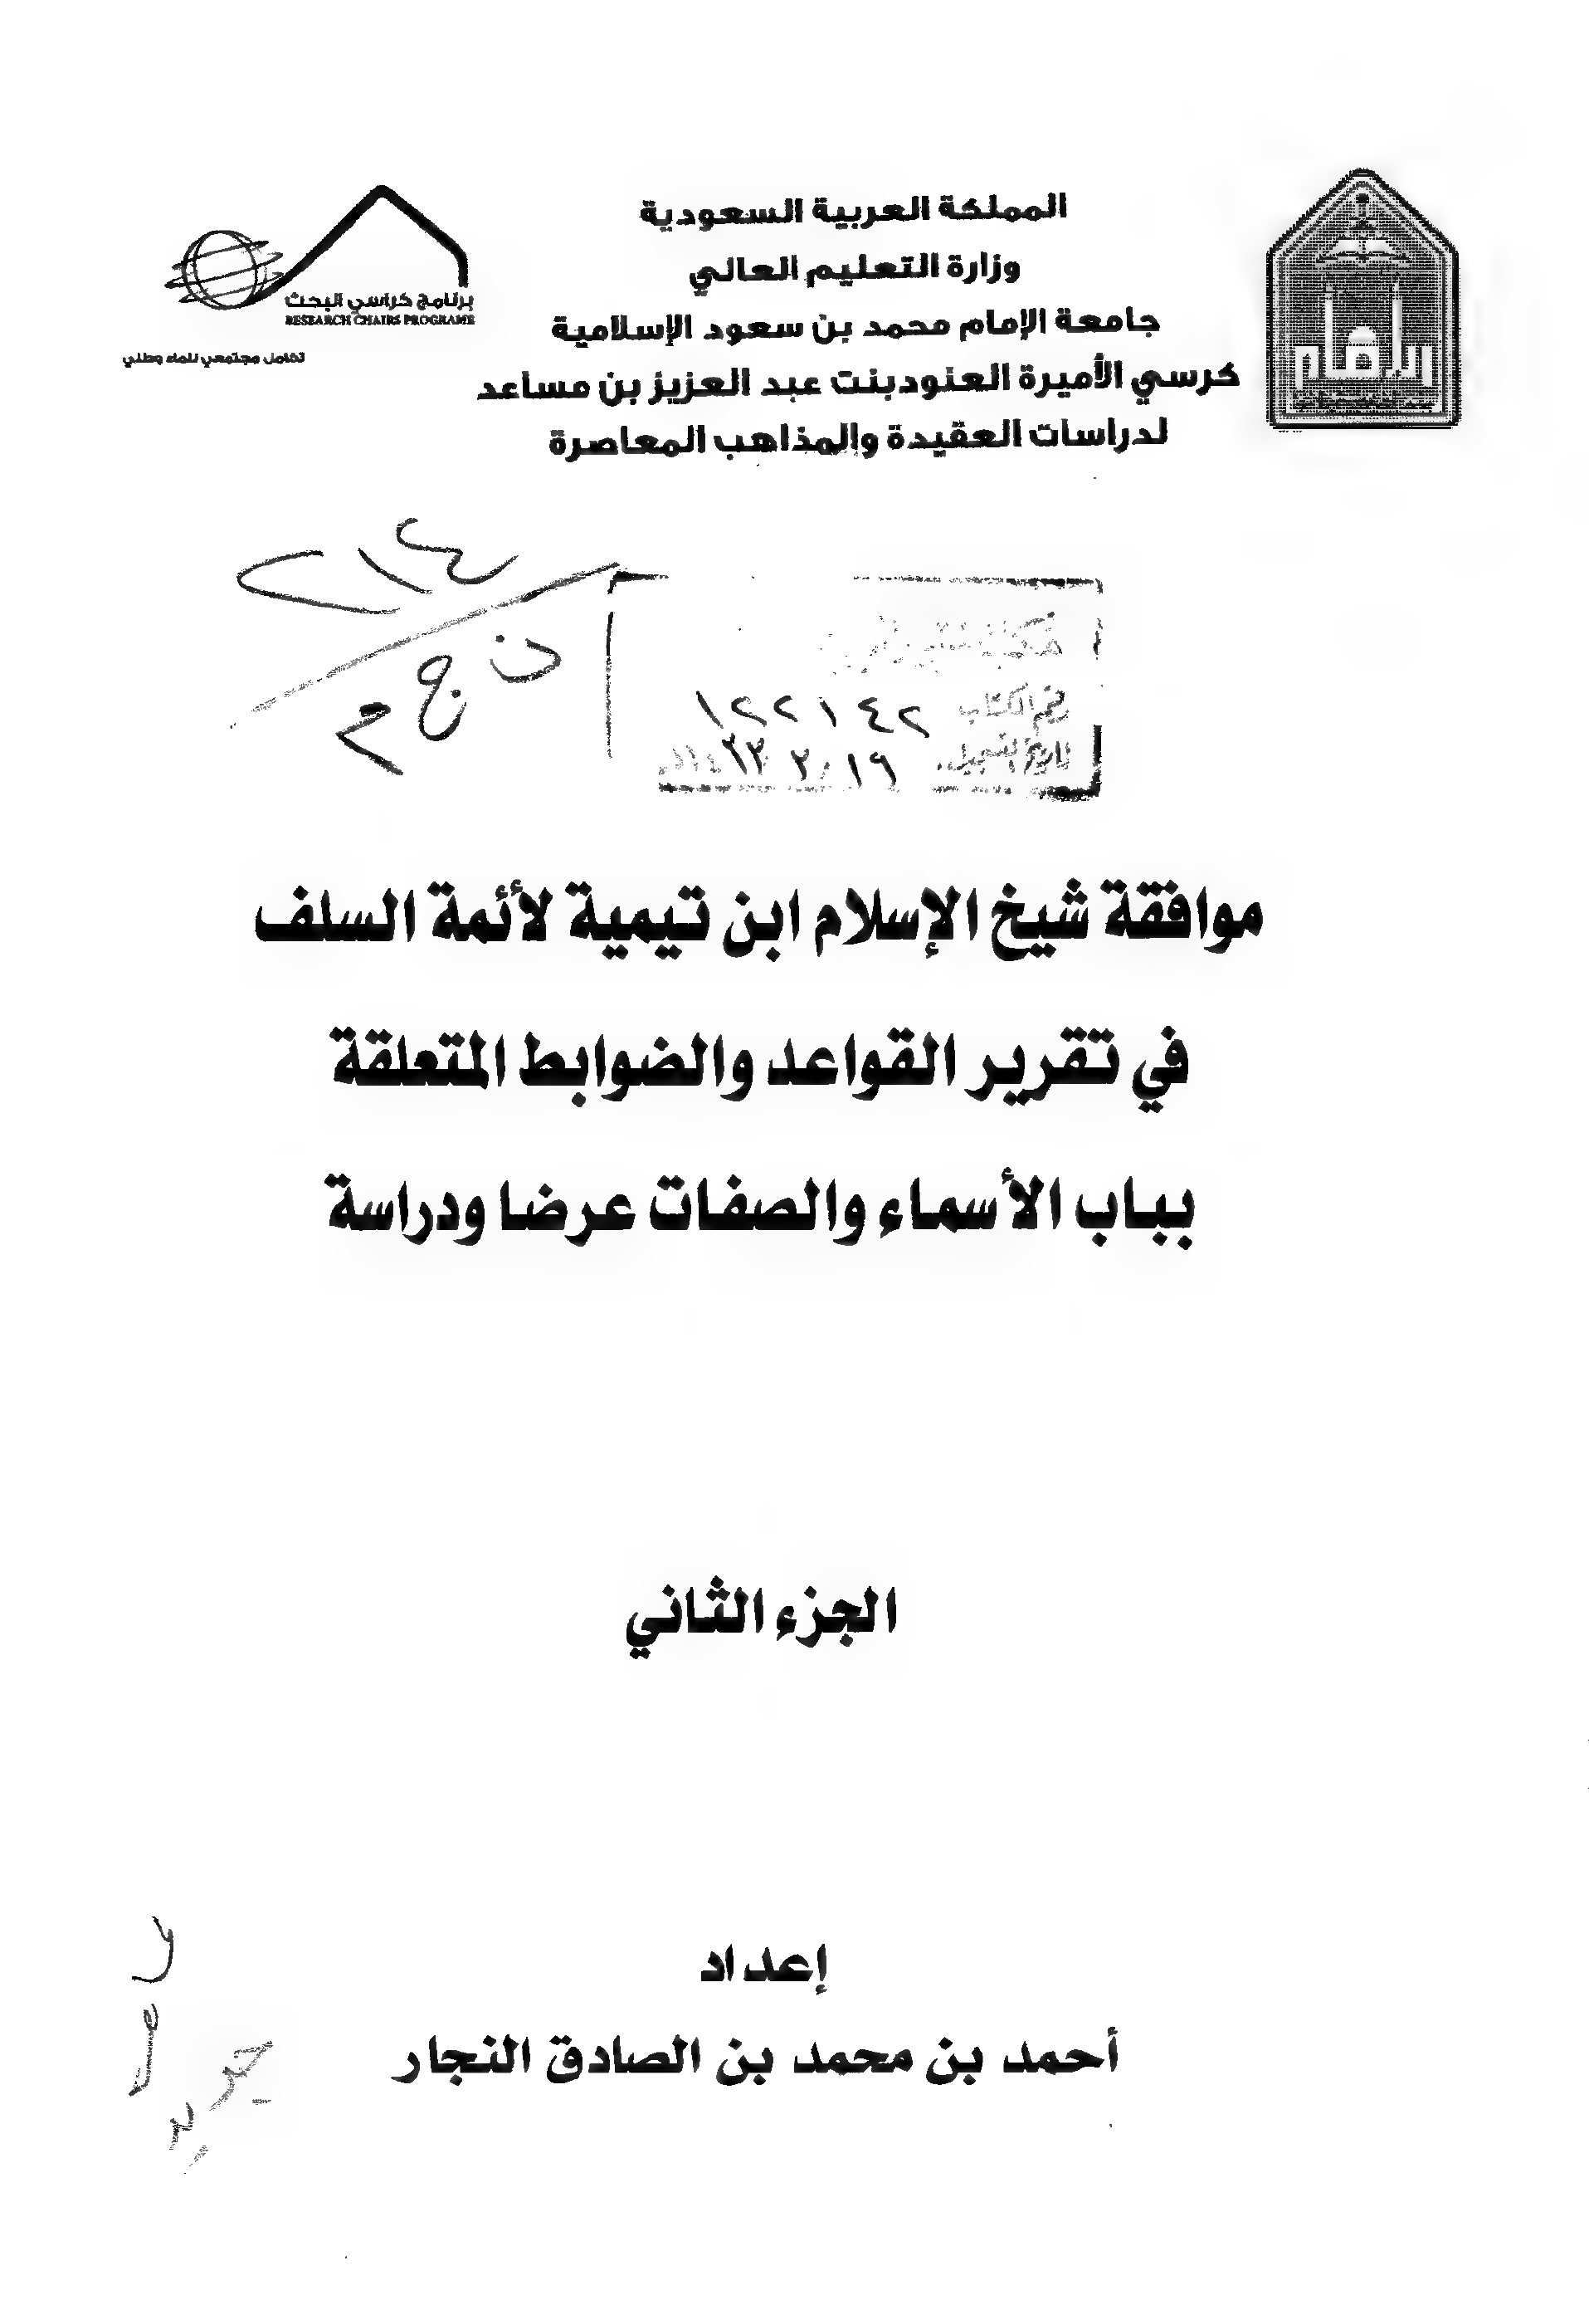 المملكة العربية السعودية
وزارة التعليم العالي
جامعة الإمام محمد بن سعود الإسلامية
كرسي الأميرة العنود بنت عبد العزيز بن مساعد
لدراسات العقيدة والمذاهب المعاصرة
الإمام
برنامج كراسي البحث
RESEARCH CHAIRS PROGRAME
تكامل مجتمعي لنماء وطني
٢١٤
ن ج م
رقم الكتاب ١٢٢١٤٢
تاريخ التسجيل
موافقة شيخ الإسلام ابن تيمية لأئمة السلف
في تقرير القواعد والضوابط المتعلقة
بباب الأسماء والصفات عرضا ودراسة
الجزء الثاني
إعداد
أحمد بن محمد بن الصادق النجار